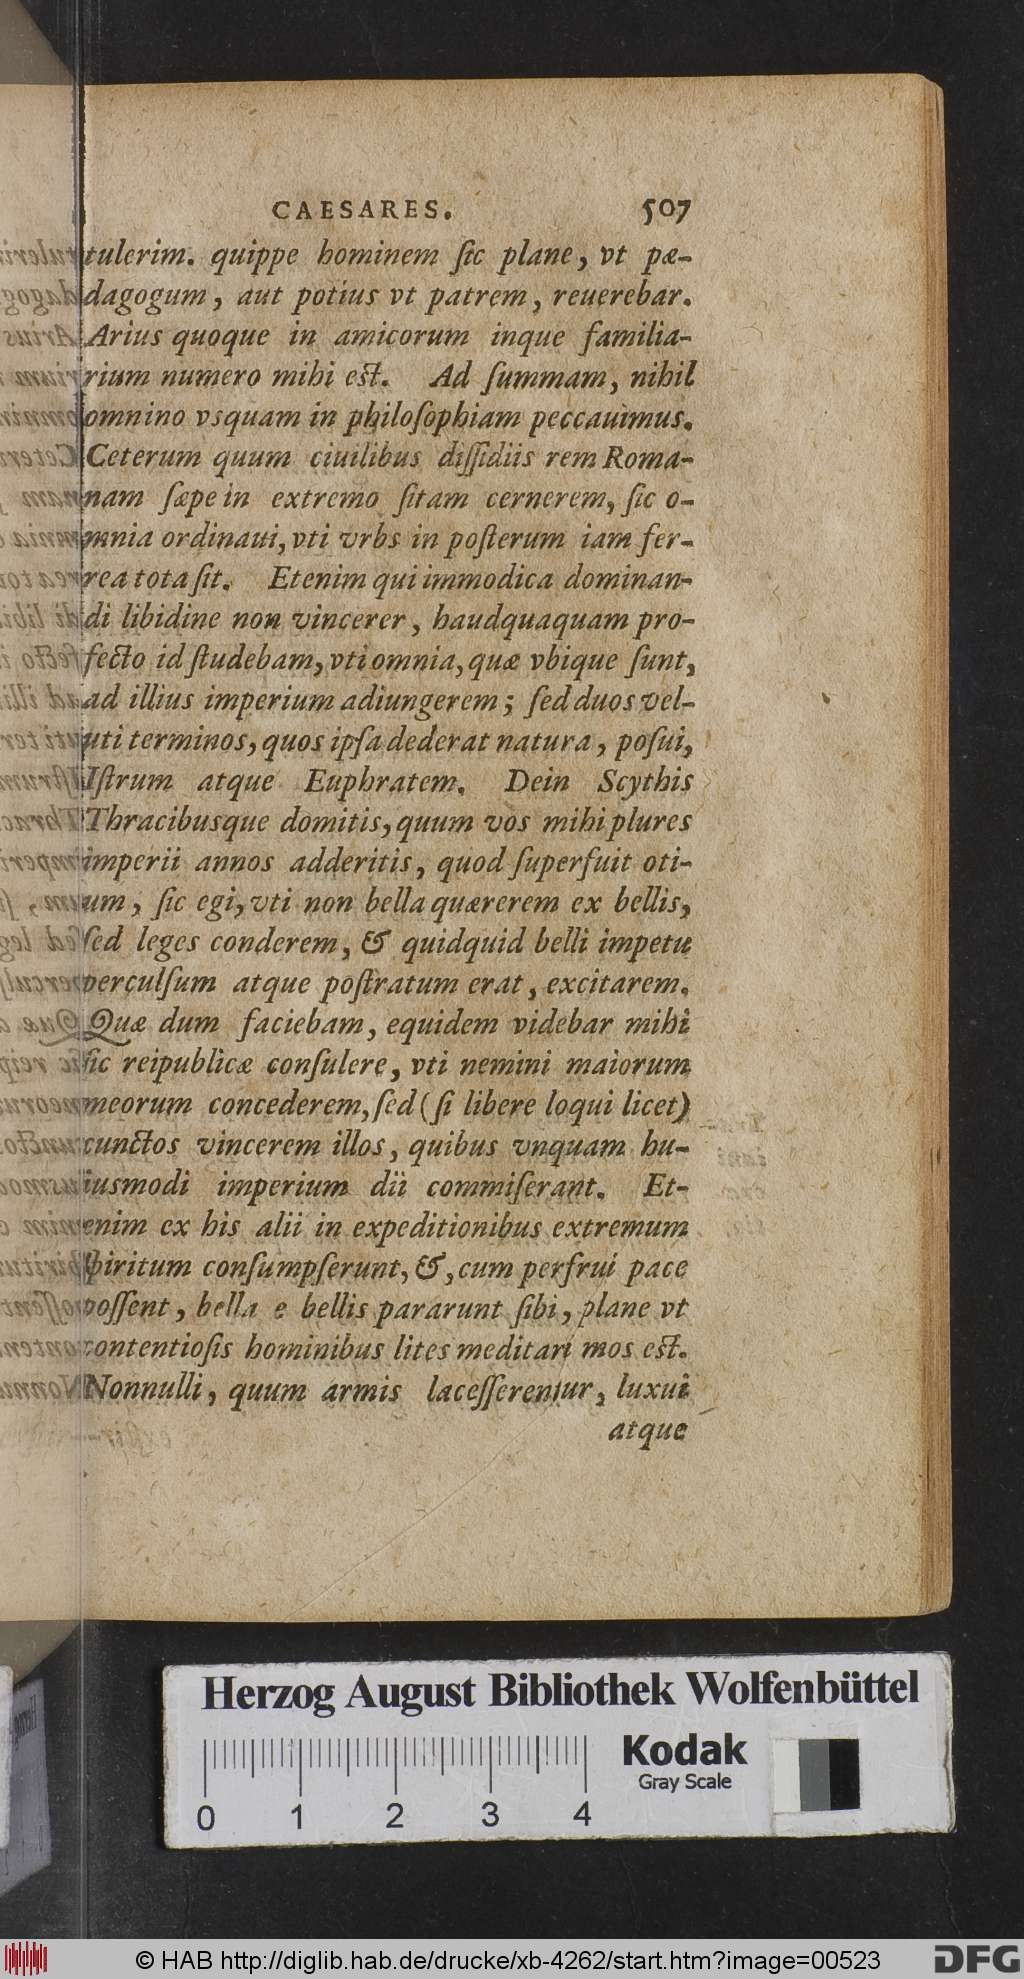 CAESARES. 507
tulerim. quippe hominem ſic plane, vt pæ-
dagogum, aut potius vt patrem, reuerebar.
Arius quoque in amicorum inque familia-
rium numero mihi est. Ad ſummam, nihil
omnino vsquam in philoſophiam peccauimus.
Ceterum quum ciuilibus diſſidiis rem Roma-
nam ſæpe in extremo ſitam cernerem, ſic o-
mnia ordinaui, vti vrbs in poſterum iam fer-
rea tota ſit. Etenim qui immodica dominan-
di libidine non vincerer, haudquaquam pro-
fecto id ſtudebam, vti omnia, quæ vbique ſunt,
ad illius imperium adiungerem; ſed duos vel-
uti terminos, quos ipſa dederat natura, poſui,
Iſtrum atque Euphratem. Dein Scythis
Thracibusque domitis, quum vos mihi plures
imperii annos adderitis, quod ſuperfuit oti-
um, ſic egi, vti non bella quærerem ex bellis,
ſed leges conderem, & quidquid belli impetu
perculſum atque poſtratum erat, excitarem.
Quæ dum faciebam, equidem videbar mihi
ſic reipublicæ conſulere, vti nemini maiorum
meorum concederem, ſed (ſi libere loqui licet)
cunctos vincerem illos, quibus vnquam hu-
iusmodi imperium dii commiſerant. Et-
enim ex his alii in expeditionibus extremum
ſpiritum conſumpſerunt, &, cum perfrui pace
poſſent, bella e bellis pararunt ſibi, plane vt
contentioſis hominibus lites meditari mos est.
Nonnulli, quum armis laceſſerentur, luxui
atque
Herzog August Bibliothek Wolfenbüttel
Kodak
Gray Scale
0 1 2 3 4
© HAB http://diglib.hab.de/drucke/xb-4262/start.htm?image=00523
DFG